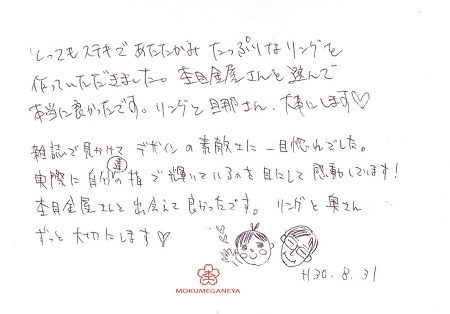 とってもステキであたたかみたっぷりなリングを
作っていただきました。杢目金屋さんを選んで
本当に良かったです。リングと旦那さん、大事にします♡
雑誌で見かけてデザインの素敵さに一目惚れでした。
実際に自分達の指で輝いているのを目にして感動しています！
杢目金屋さんと出会えて良かったです。リングと奥さん
ずっと大切にします♡
H30.8.31
MOKUMEGANEYA